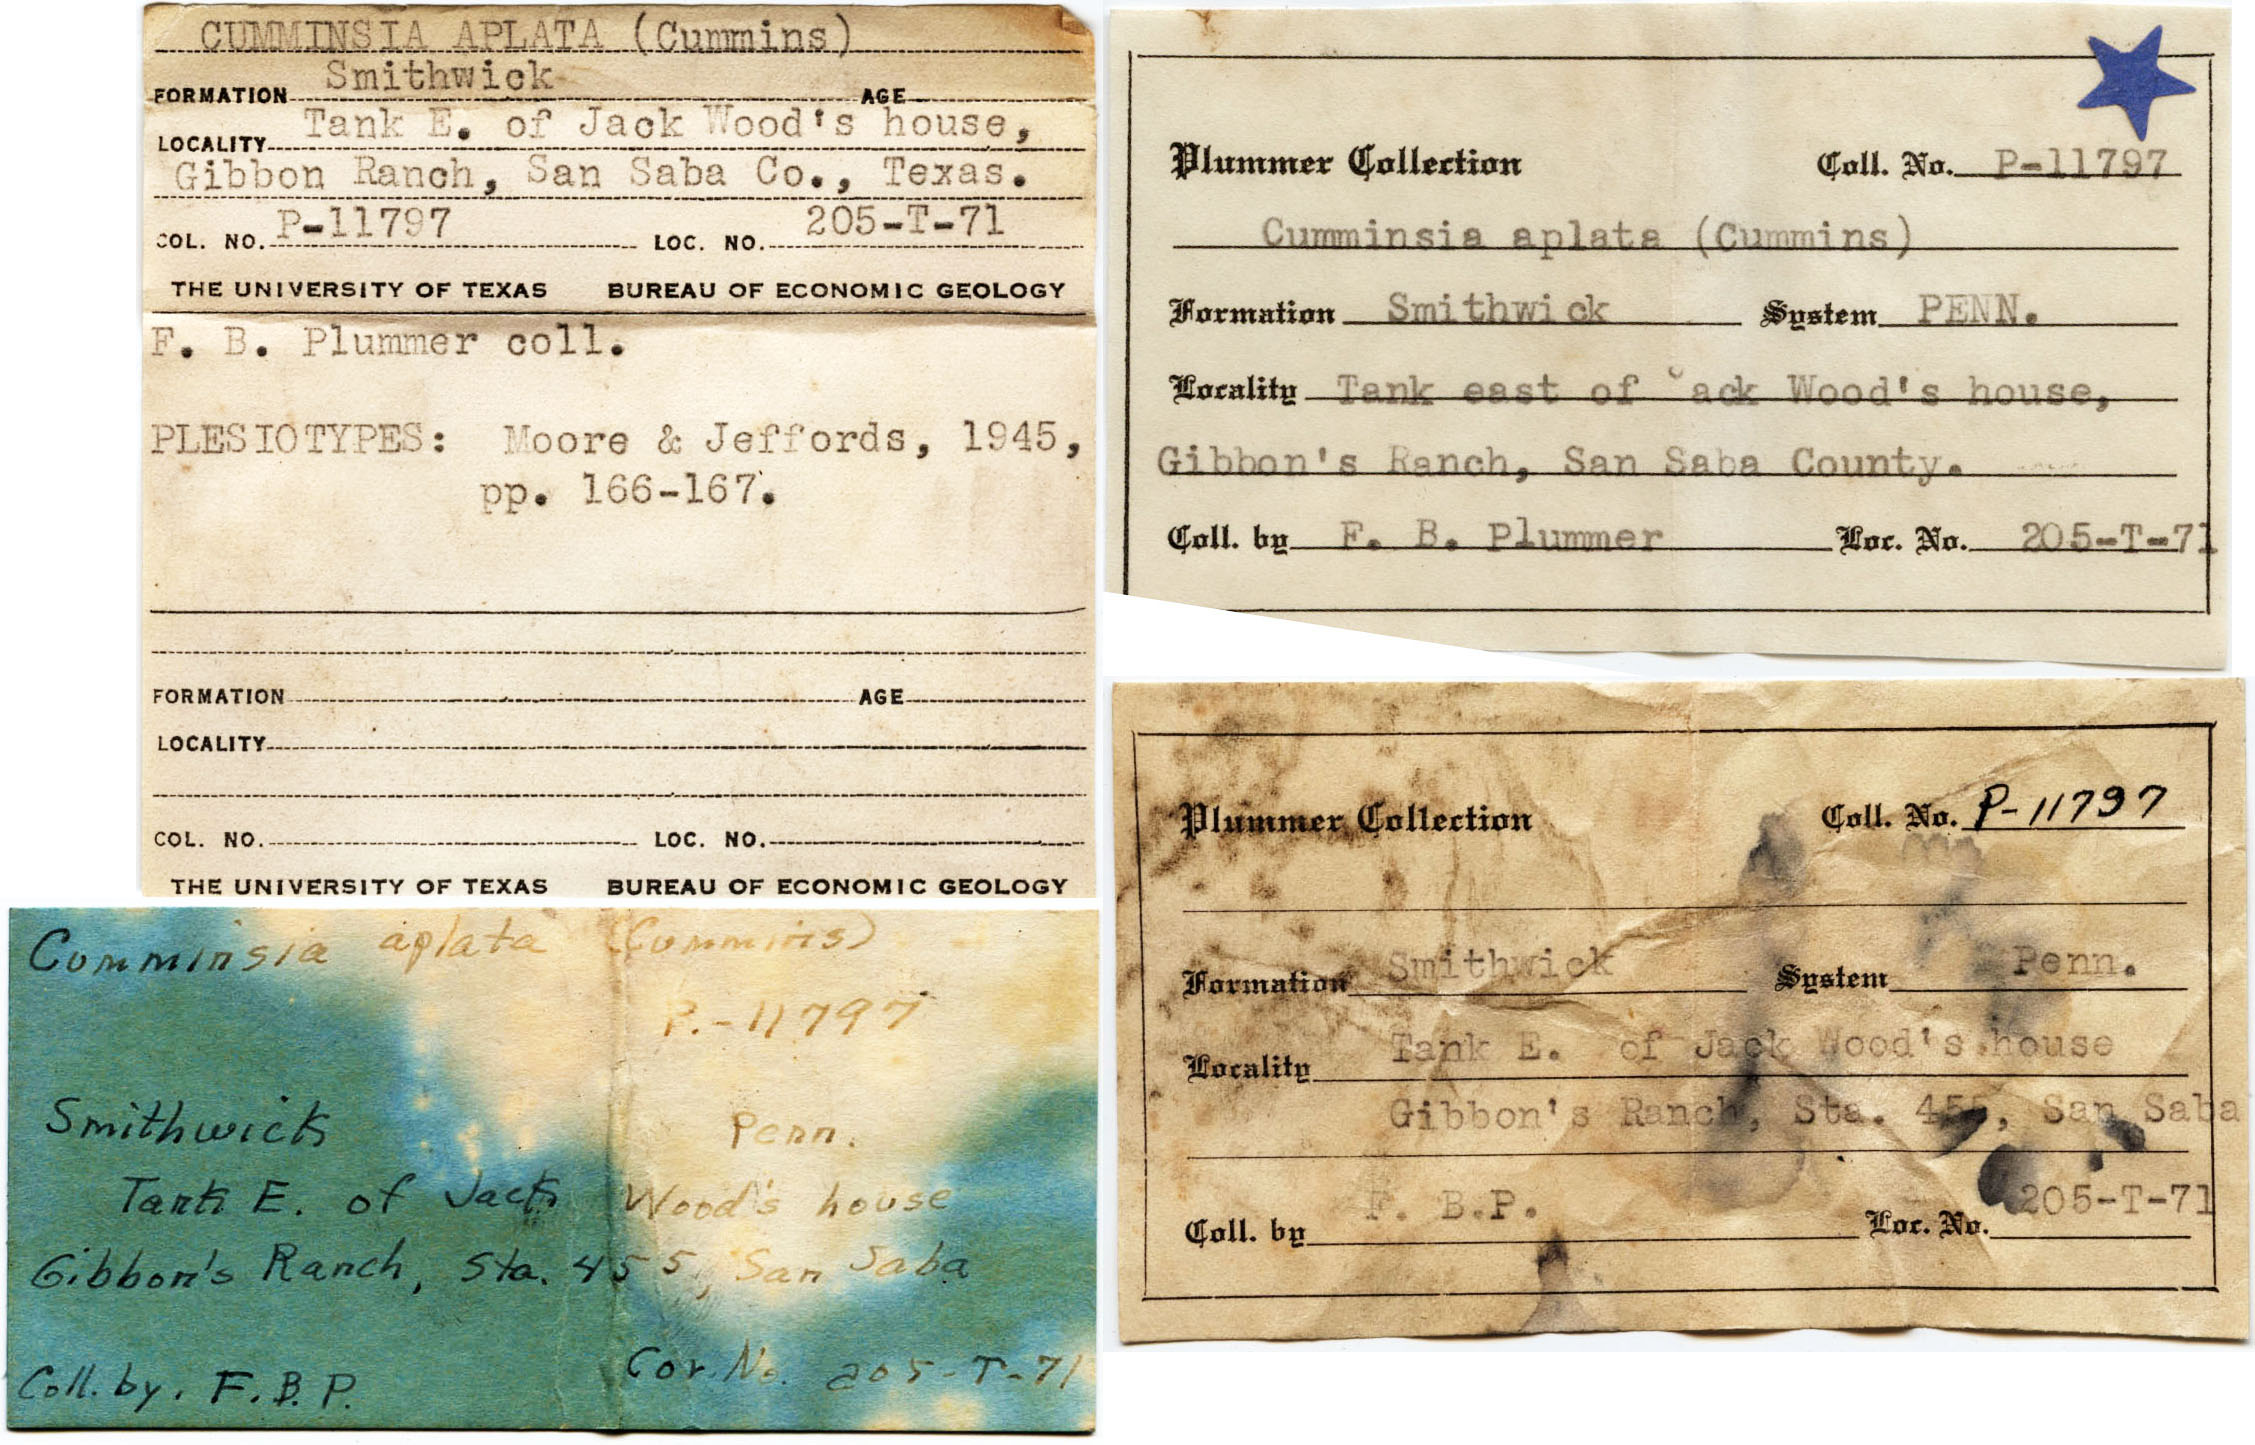 CUMMINSIA APLATA (Cummins)
FORMATION Smithwick AGE
LOCALITY Tank E. of Jack Wood's house,
Gibbon Ranch, San Saba Co., Texas.
COL. NO. P-11797 LOC. NO. 205-T-71
THE UNIVERSITY OF TEXAS BUREAU OF ECONOMIC GEOLOGY
F. B. Plummer coll.
PLESIOTYPES: Moore & Jeffords, 1945,
pp. 166-167.
FORMATION AGE
LOCALITY
COL. NO. LOC. NO.
THE UNIVERSITY OF TEXAS BUREAU OF ECONOMIC GEOLOGY
Plummer Collection Coll. No. P-11797
Cumminsia aplata (Cummins)
Formation Smithwick System PENN.
Locality Tank east of ack Wood's house,
Gibbon's Ranch, San Saba County.
Coll. by F. B. Plummer Loc. No. 205-T-71
Cumminsia aplata (Cummins)
P.-11797
Smithwick Penn.
Tank E. of Jack Wood's house
Gibbon's Ranch, Sta. 455, San Saba
Coll. by. F.B.P. Cor. No. 205-T-71
Plummer Collection Coll. No. P-11797
Formation Smithwick System Penn.
Locality Tank E. of Jack Wood's house
Gibbon's Ranch, Sta. 455, San Saba
Coll. by F. B.P. Loc. No. 205-T-71